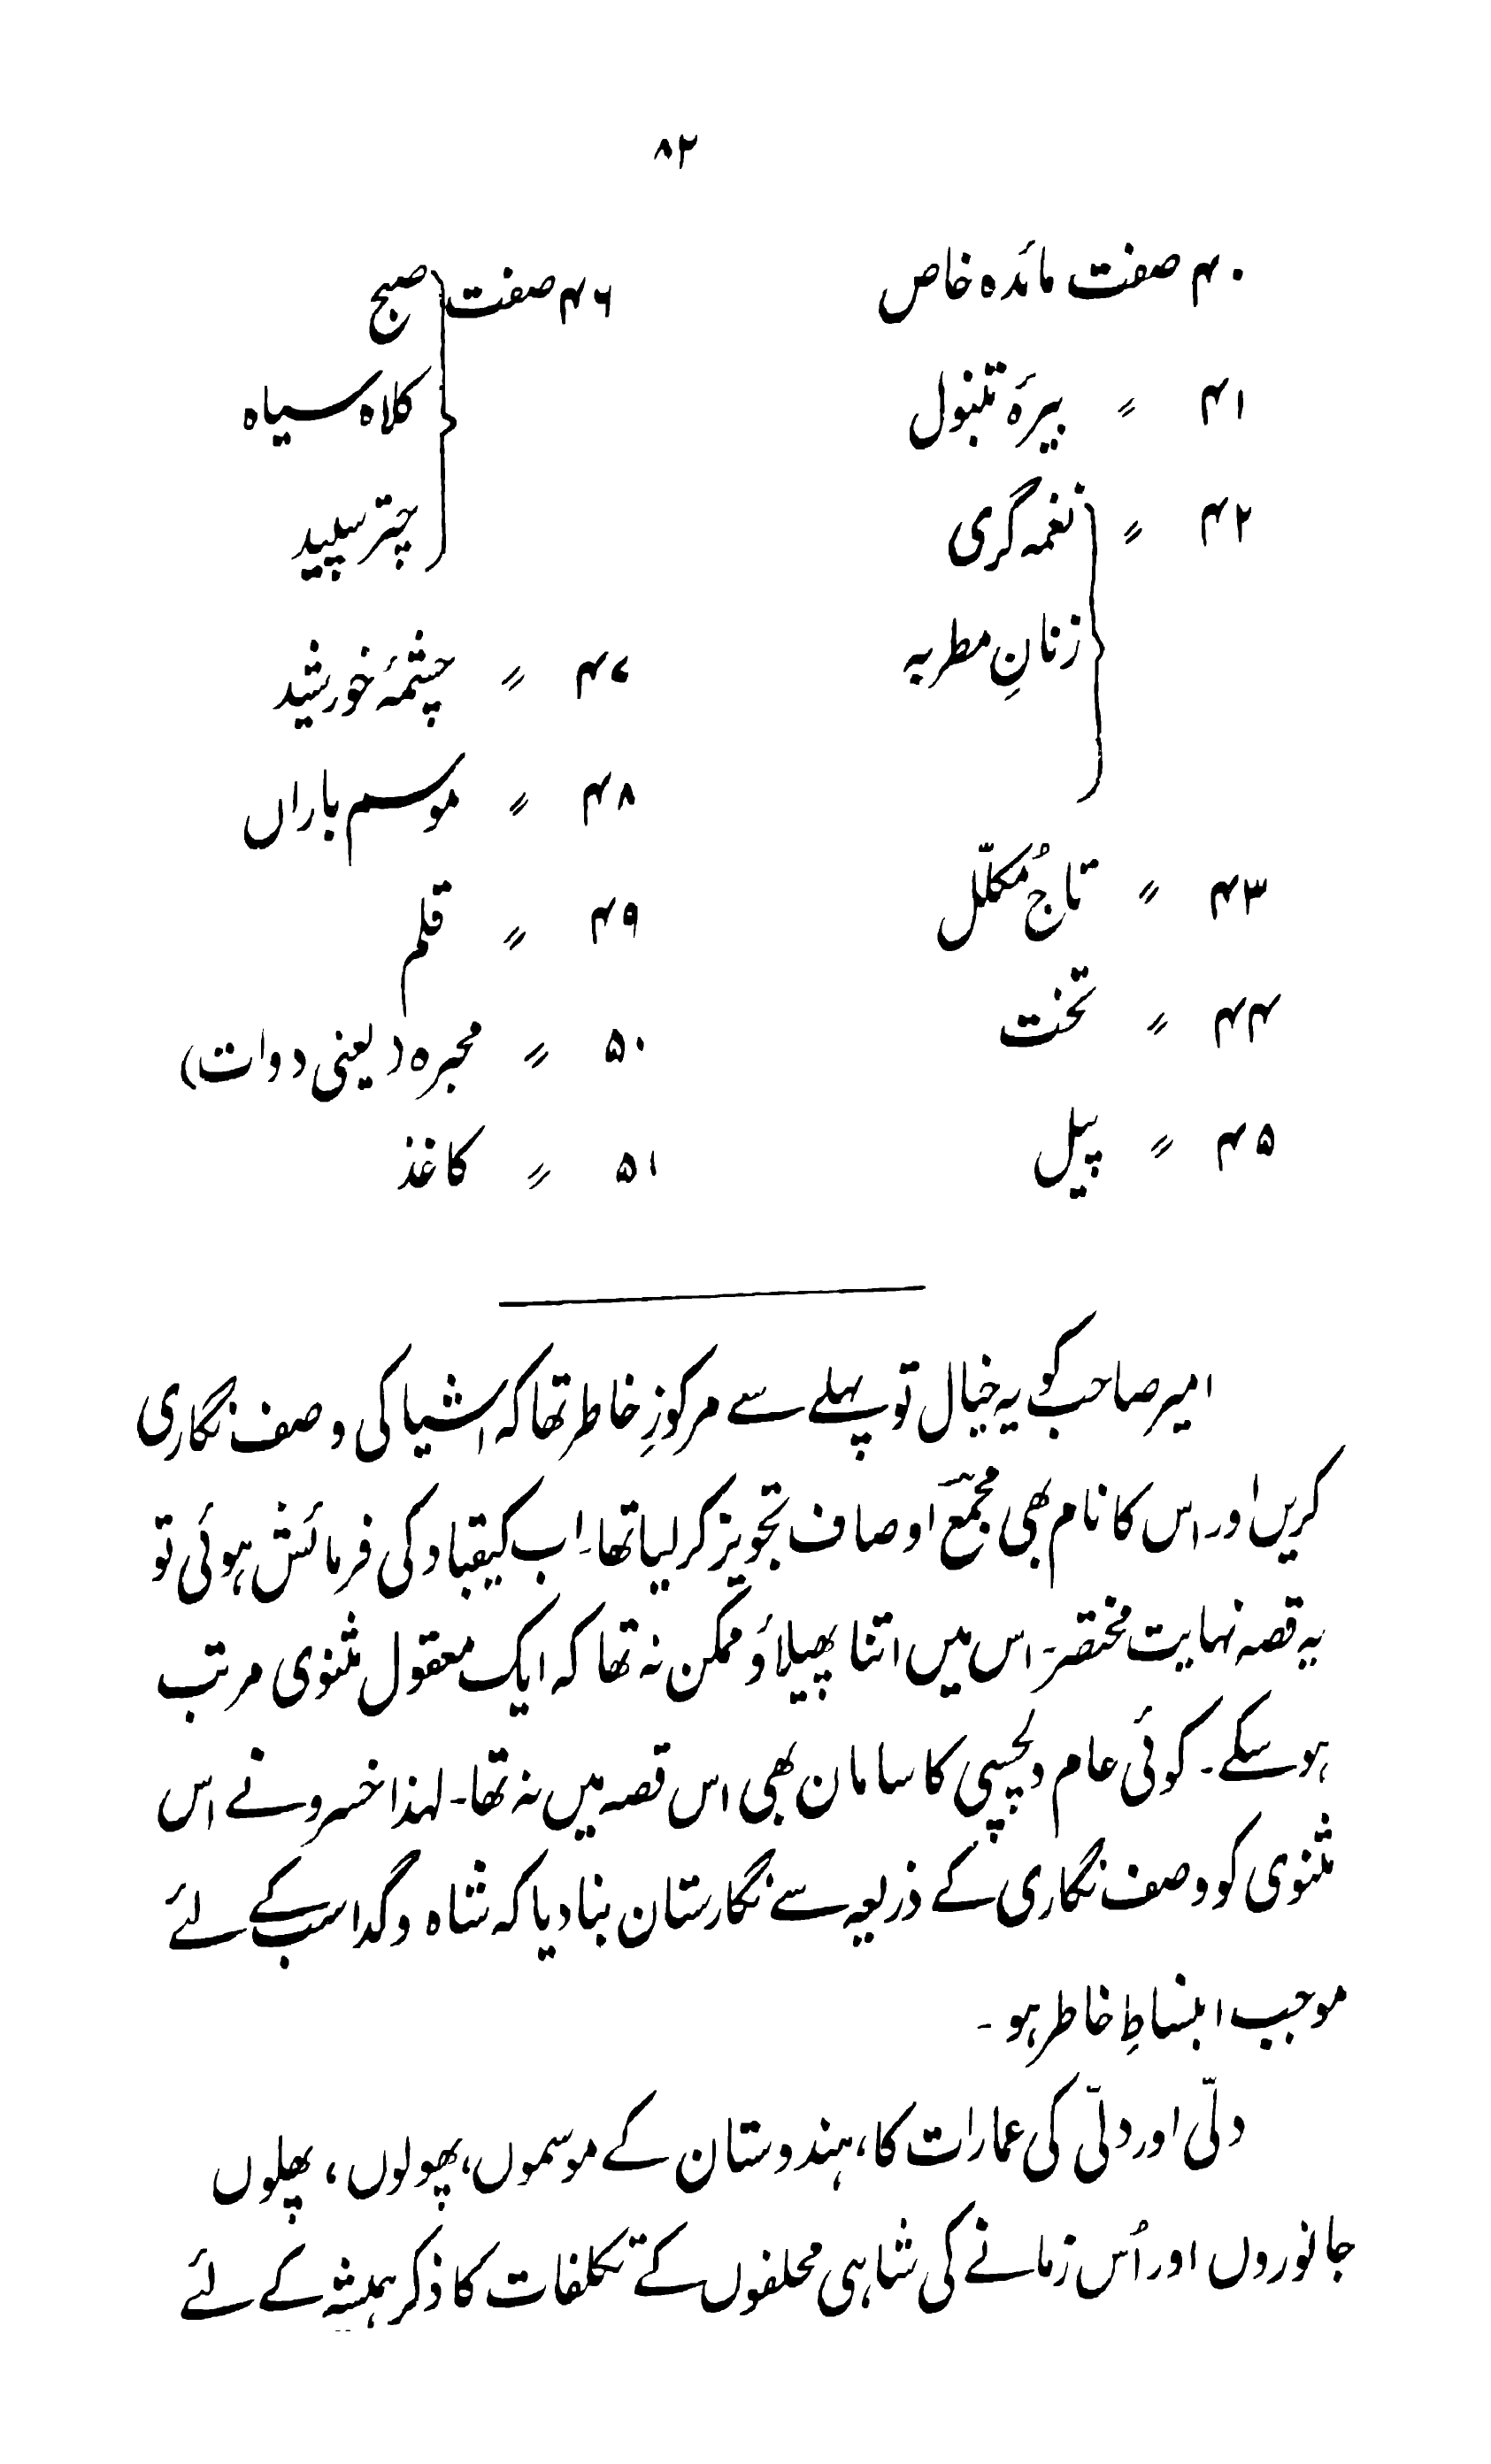 ۸۲
۴۰ صفت مائدہ خاص
۴۱ 〃 بیرۂ تنبول
۴۲ 〃 نغمہ گری
زنانِ مطربہ
۴۳ 〃 تاج مُکلّل
۴۴ 〃 تخت
۴۵ 〃 پیل
۴۶ صفت صبح
کلاہ سیاہ
چتر سپید
۴۷ 〃 چشمۂ خورشید
۴۸ 〃 موسم باراں
۴۹ 〃 قلم
۵۰ 〃 محبرہ (یعنی دوات)
۵۱ 〃 کاغذ
امیر صاحب کو یہ خیال تو پہلے سے مرکوزِ خاطر تھا کہ اشیا کی وصف نگاری
کریں اور اس کا نام بھی مجمع اوصاف تجویز کر لیا تھا۔ اب کیقباد کی فرمائش ہوئی تو
یہ قصہ نہایت مختصر۔ اس میں اتنا پھیلاؤ ممکن نہ تھا کہ ایک معقول مثنوی مرتب
ہو سکے۔ کوئی عام دلچسپی کا سامان بھی اس قصہ میں نہ تھا۔ لہذا خسرو نے اس
مثنوی کو وصف نگاری کے ذریعہ سے نگارستان بنا دیا کہ شاہ و گدا سب کے لئے
موجب ابنساطِ خاطر ہو۔
دلّی اور دلّی کی عمارات کا، ہندوستان کے موسموں، پھولوں، پھلوں
جانوروں اور اُس زمانے کی شاہی محلفوں کے تکلفات کا ذکر ہمیشہ کے لئے